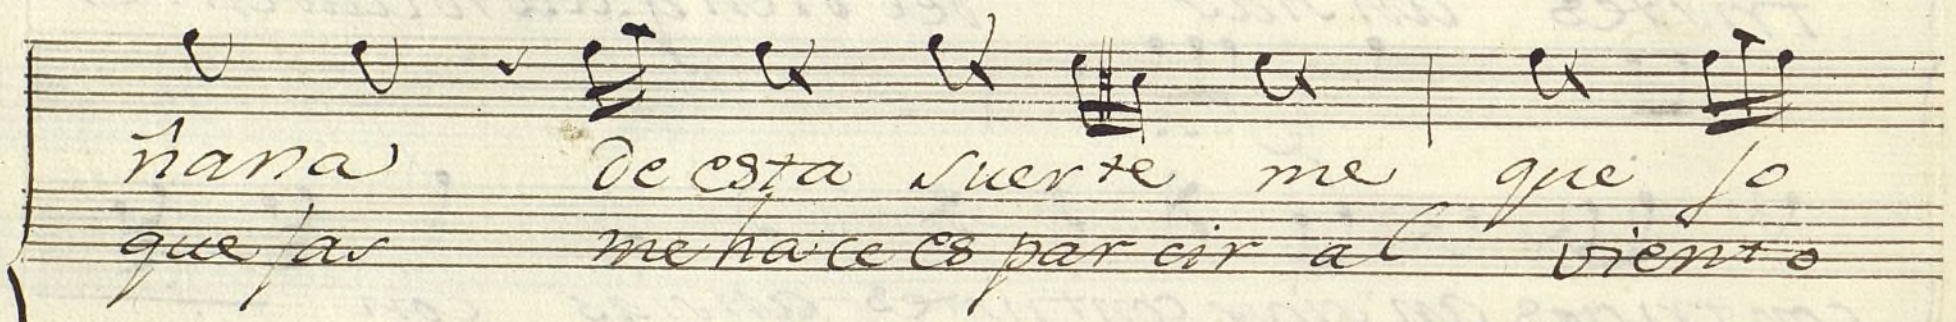 ñana de esta suerte me quejo
quejas me hace esparcir al viento